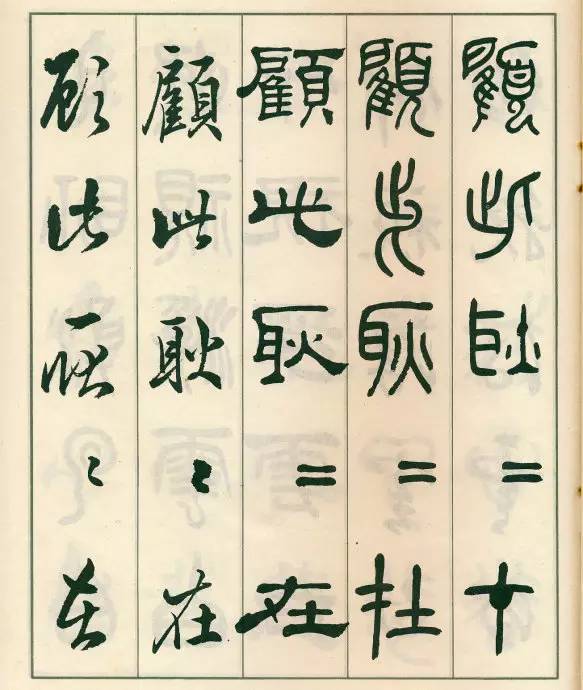 顧此耿〻在
顧此耿〻在
顧此耿〻在
顧此耿〻在
顧此耿〻在